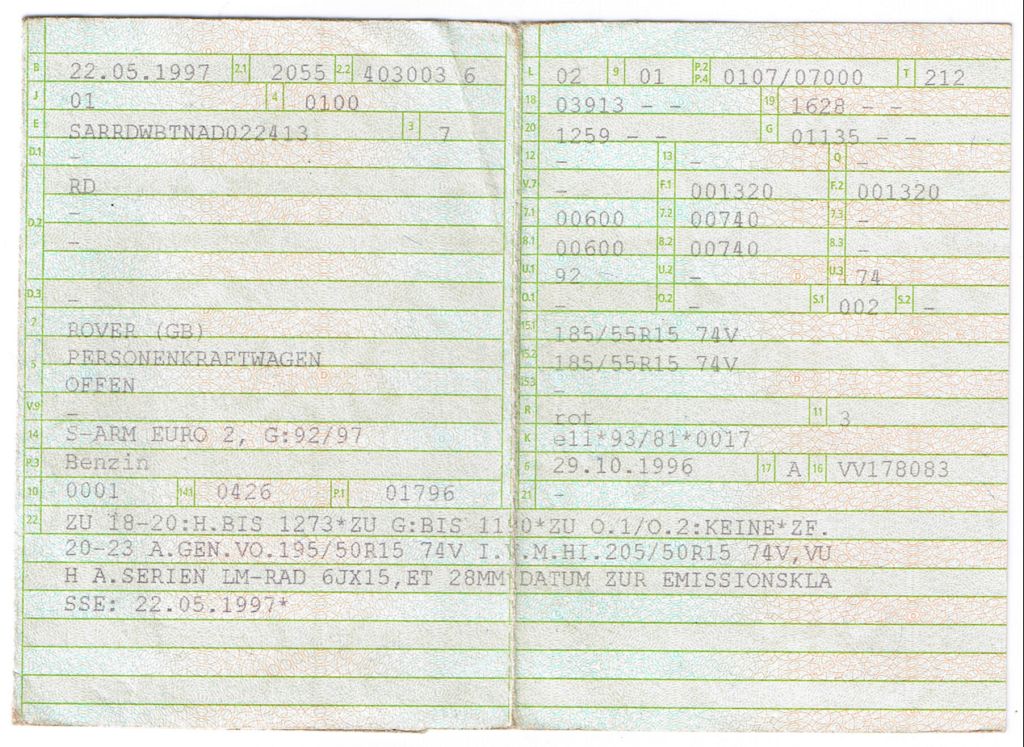 B 22.05.1997 2.1 2055 2.2 403003 6
J 01 4 0100
E SARRDWBTNAD022413 3 7
D.1 –
RD
–
D.2
–
D.3 –
2 ROVER (GB)
5 PERSONENKRAFTWAGEN
OFFEN
V.9 –
14 S-ARM EURO 2, G:92/97
P.3 Benzin
10 0001 14.1 0426 P.1 01796
L 02 9 01 P.2 P.4 0107/07000 T 212
18 03913 – – 19 1628 – –
20 1259 – – G 01135 – –
12 – 13 – Q –
V.7 – F.1 001320 F.2 001320
7.1 00600 7.2 00740 7.3 –
8.1 00600 8.2 00740 8.3 –
U.1 92 U.2 – U.3 74
O.1 – O.2 – S.1 002 S.2 –
15.1 185/55R15 74V
15.2 185/55R15 74V
15.3 –
R rot 11 3
K e11*93/81*0017
6 29.10.1996 17 A 16 VV178083
21 –
22 ZU 18-20:H.BIS 1273*ZU G:BIS 1190*ZU O.1/O.2:KEINE*ZF.
20-23 A.GEN.VO.195/50R15 74V I.V.M.HI.205/50R15 74V,VU
H A.SERIEN LM-RAD 6JX15,ET 28MM*DATUM ZUR EMISSIONSKLA
SSE: 22.05.1997*